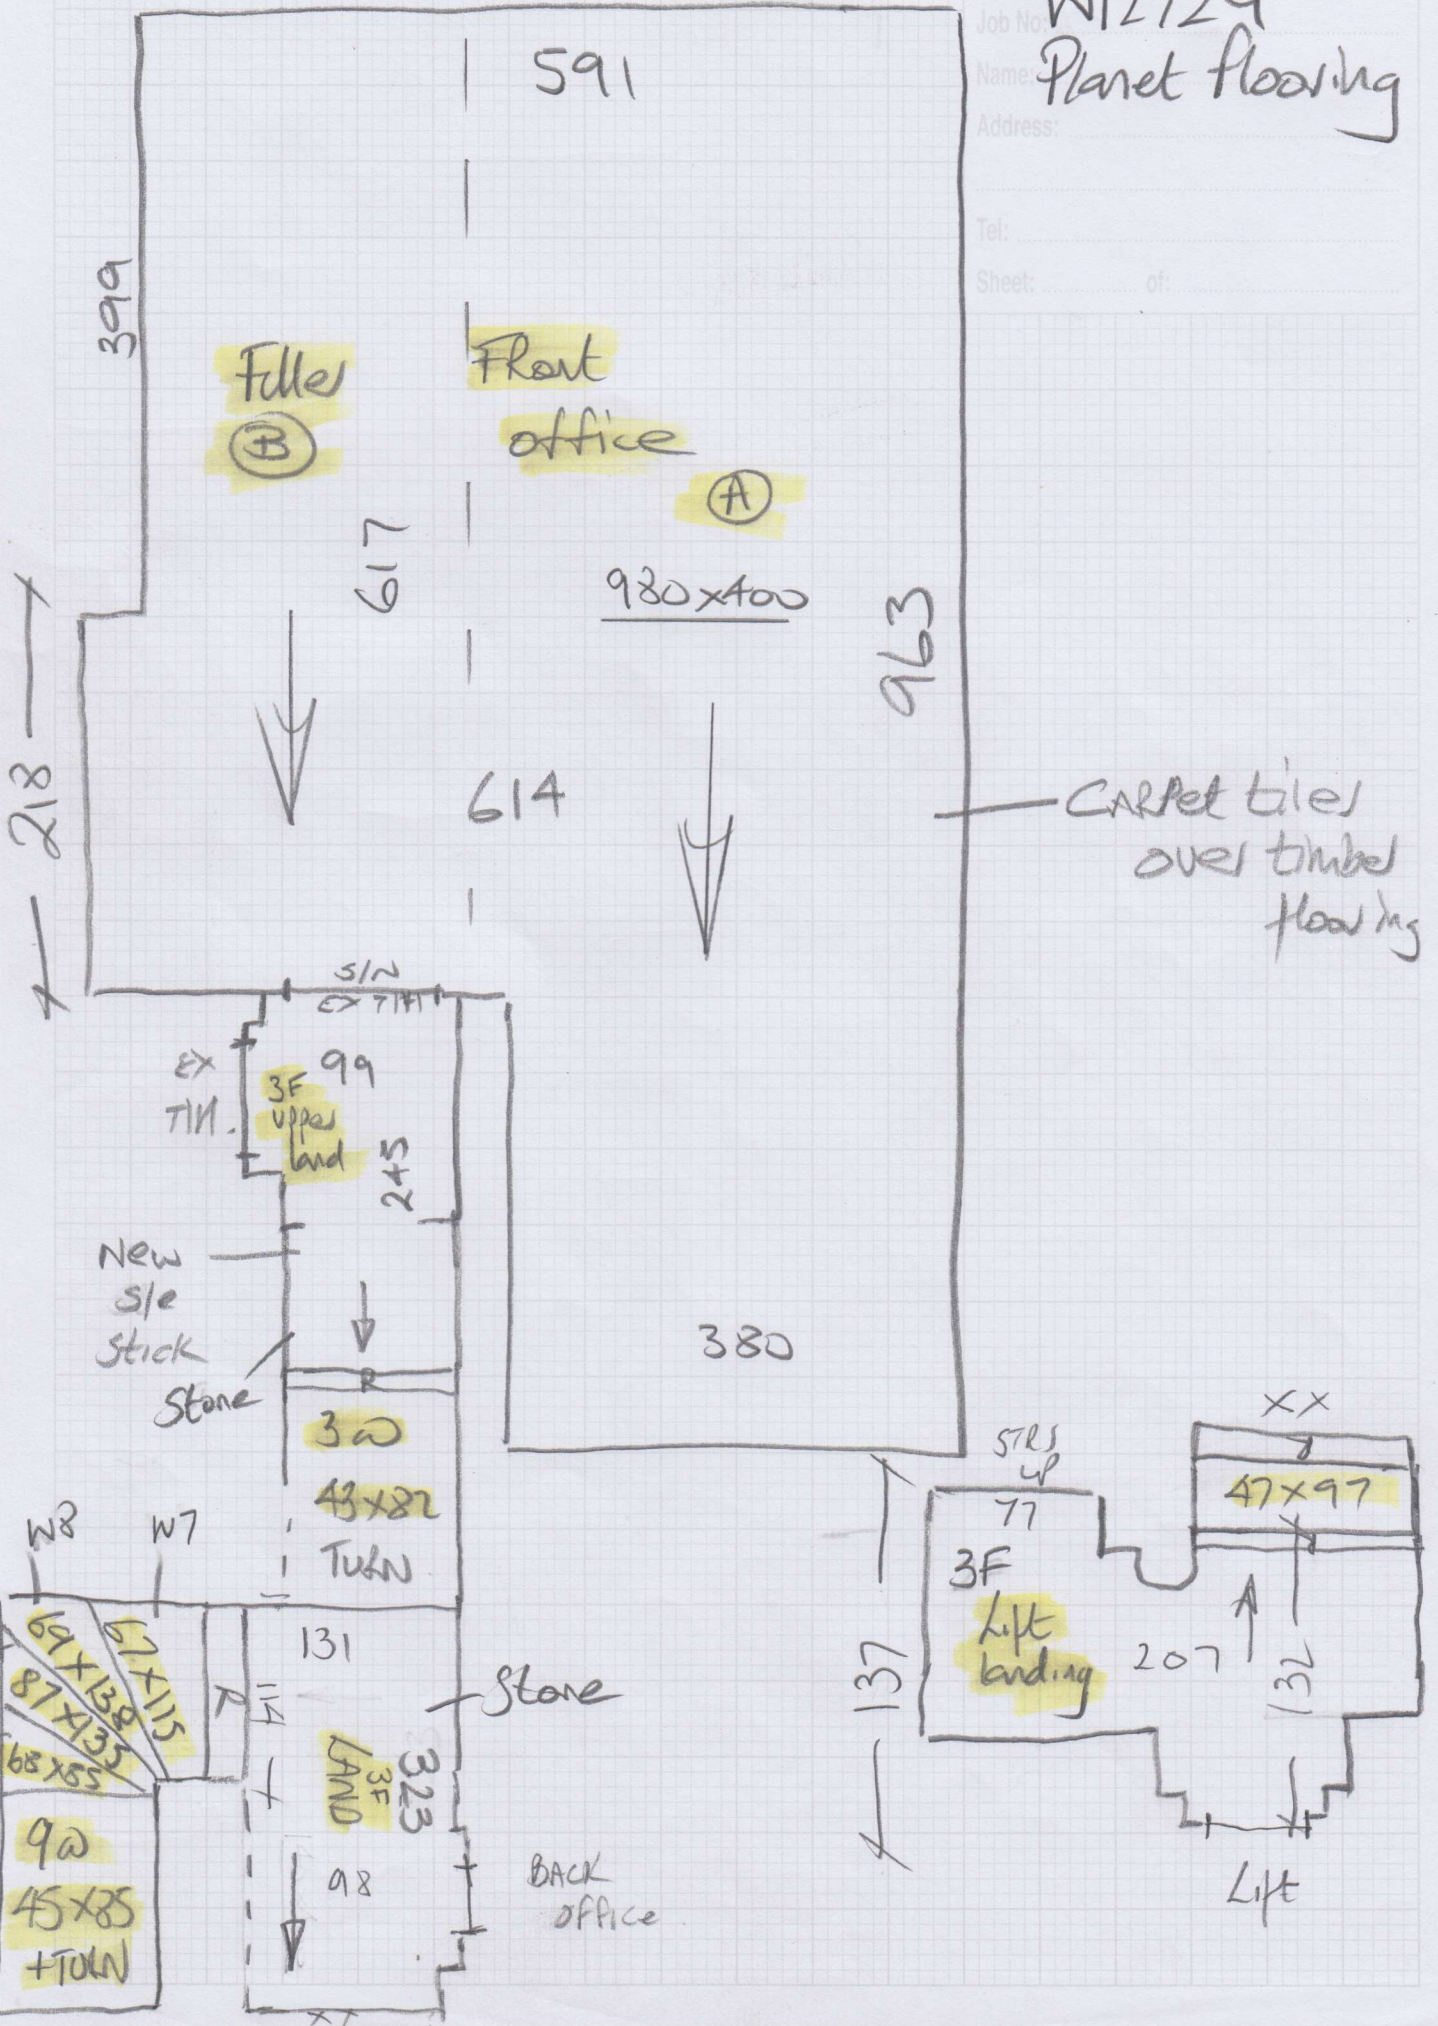 Job No: W12729
Name: Planet flooring
Address:
Tel:
Sheet: of:
591
399
Filler
B
Front
office
A
617
980x400
963
218
614
CARPet tiles
over timber
flooring
S/N
EX TIM
EX
TIM.
99
3F
upper
land
245
New
S/e
Stick
Stone
R
380
3W
43x82
TURN
W8
W7
69x138
67x115
87x135
68x85
R
131
114
Stone
3F
LAND
323
9W
45x85
+TURN
98
BACK
office
XX
STRS
UP
77
3F
Lift
landing
137
207
132
XX
47x97
Lift